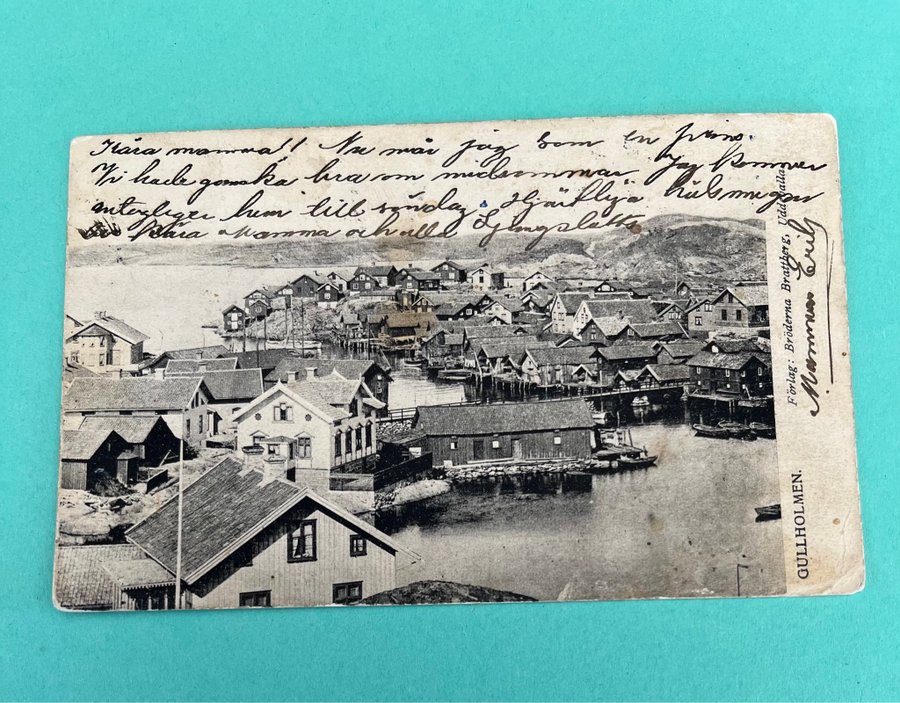 Kära mamma! Nu mår jag som en prins.
Vi hade ganska bra om midsommar. Jag kommer
antagligen hem till söndag. Hjärtliga hälsningar
Kära Mamma och alla Ljungslätts
Mammas Erik
Förlag: Bröderna Brattberg, Uddevalla.
GULLHOLMEN.